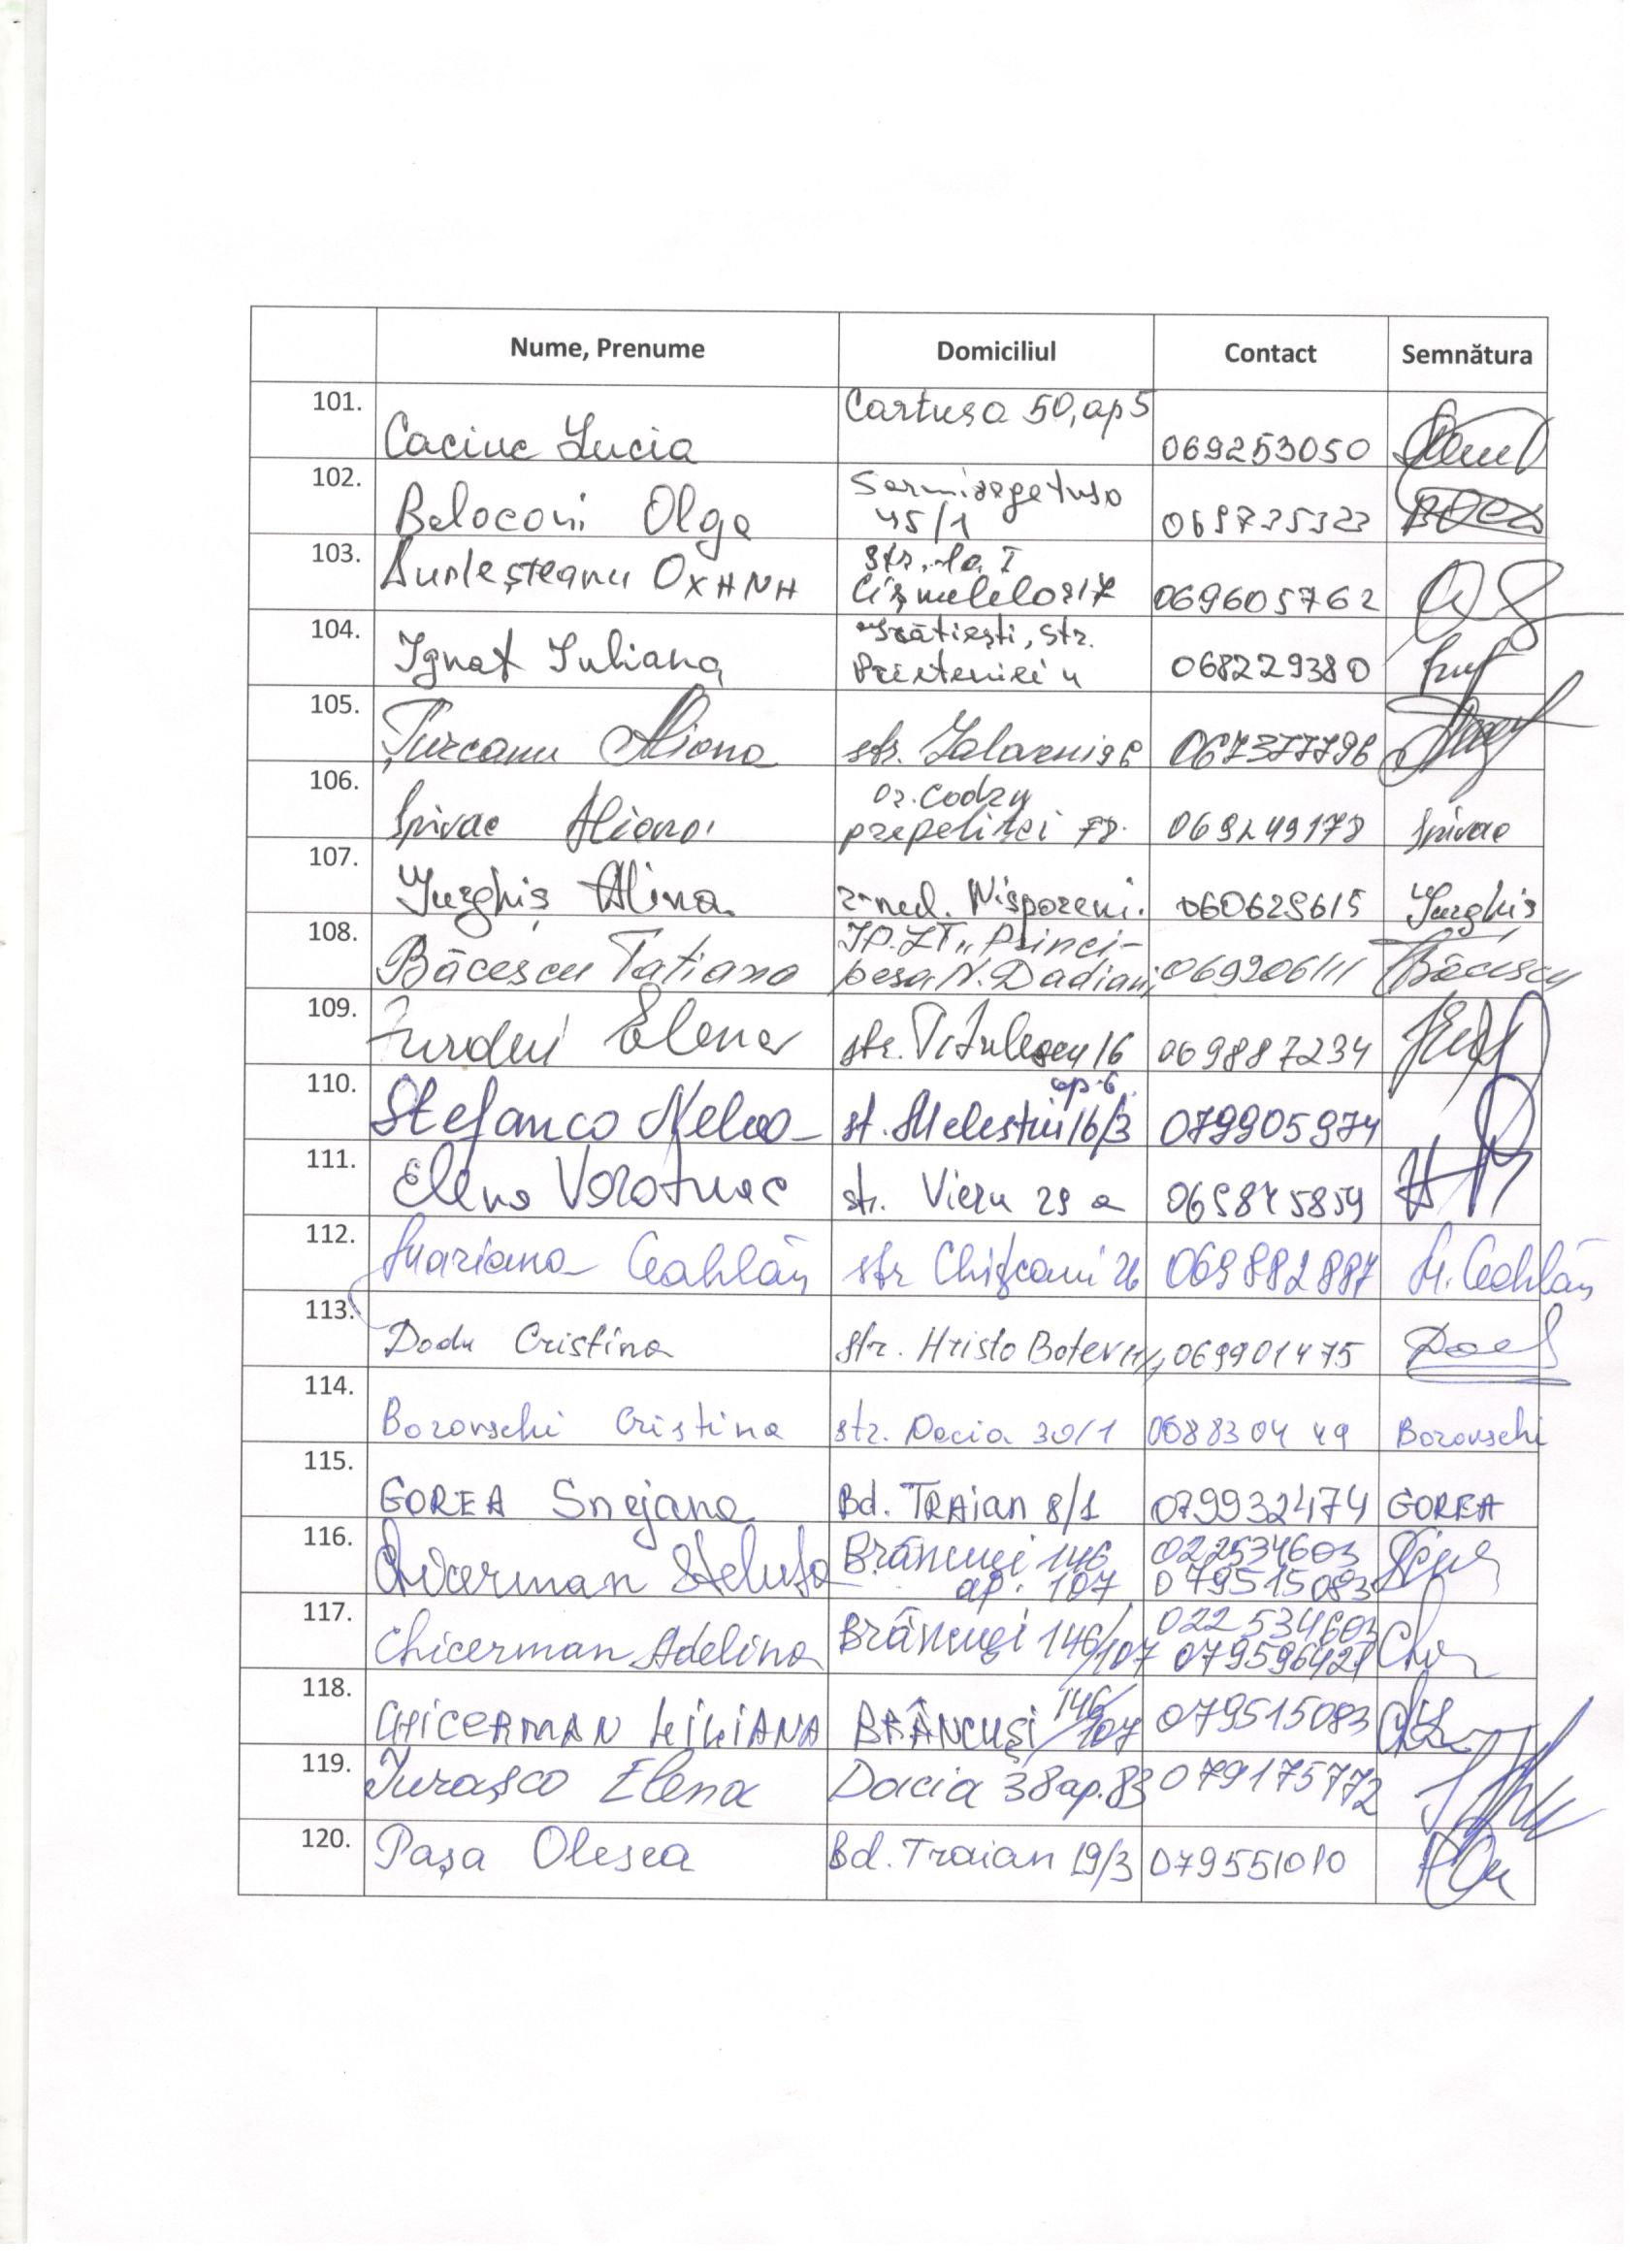 Nume, Prenume Domiciliul Contact Semnătura
101. Caciuc Lucia Cartușa 50, ap 5 069253050
102. Beloconi Olga Sarmizegetusa 45/1 069735323
103. Durleșteanu str-la I Cișmelelor 17 069605762
104. Ignat Iuliana str. Prieteniei 4 068229380
105. Țurcanu Aliona str. 067377796
106. Spivac Aliona or. Codru 069249178 Spivac
107. Iurghiș Alina Nisporeni. 060629615 Iurghiș
108. Băcescu Tatiana IP. LT „Princi-
pesa N. Dadiani 069206111 Băcescu
109. Elena str. Titulescu 16 069887234
110. Stefanco st. Melestiu 16/3 ap. 6 079905974
111. Elena Vorotneac str. Vieru 29 a 069845859
112. Mariana Ceahlău str 26 069882887 M. Ceahlău
113. Dodu Cristina str. Hristo Botev 069901475
114. Borovschi Cristina str. Dacia 30/1 068830449 Borovschi
115. GOREA Snejana Bd. TRAian 8/1 079932474 GOREA
116. Chicerman Steluța Brâncuși 146 ap. 107 022534603
079515083
117. Chicerman Adelina Brâncuși 146/107 022534603
079596421
118. CHICERMAN LILIANA BRÂNCUȘI 146/107 079515083
119. Iurașco Elena Dacia 38 ap. 83 079175772
120. Pașa Olesea Bd. Traian 19/3 079551010